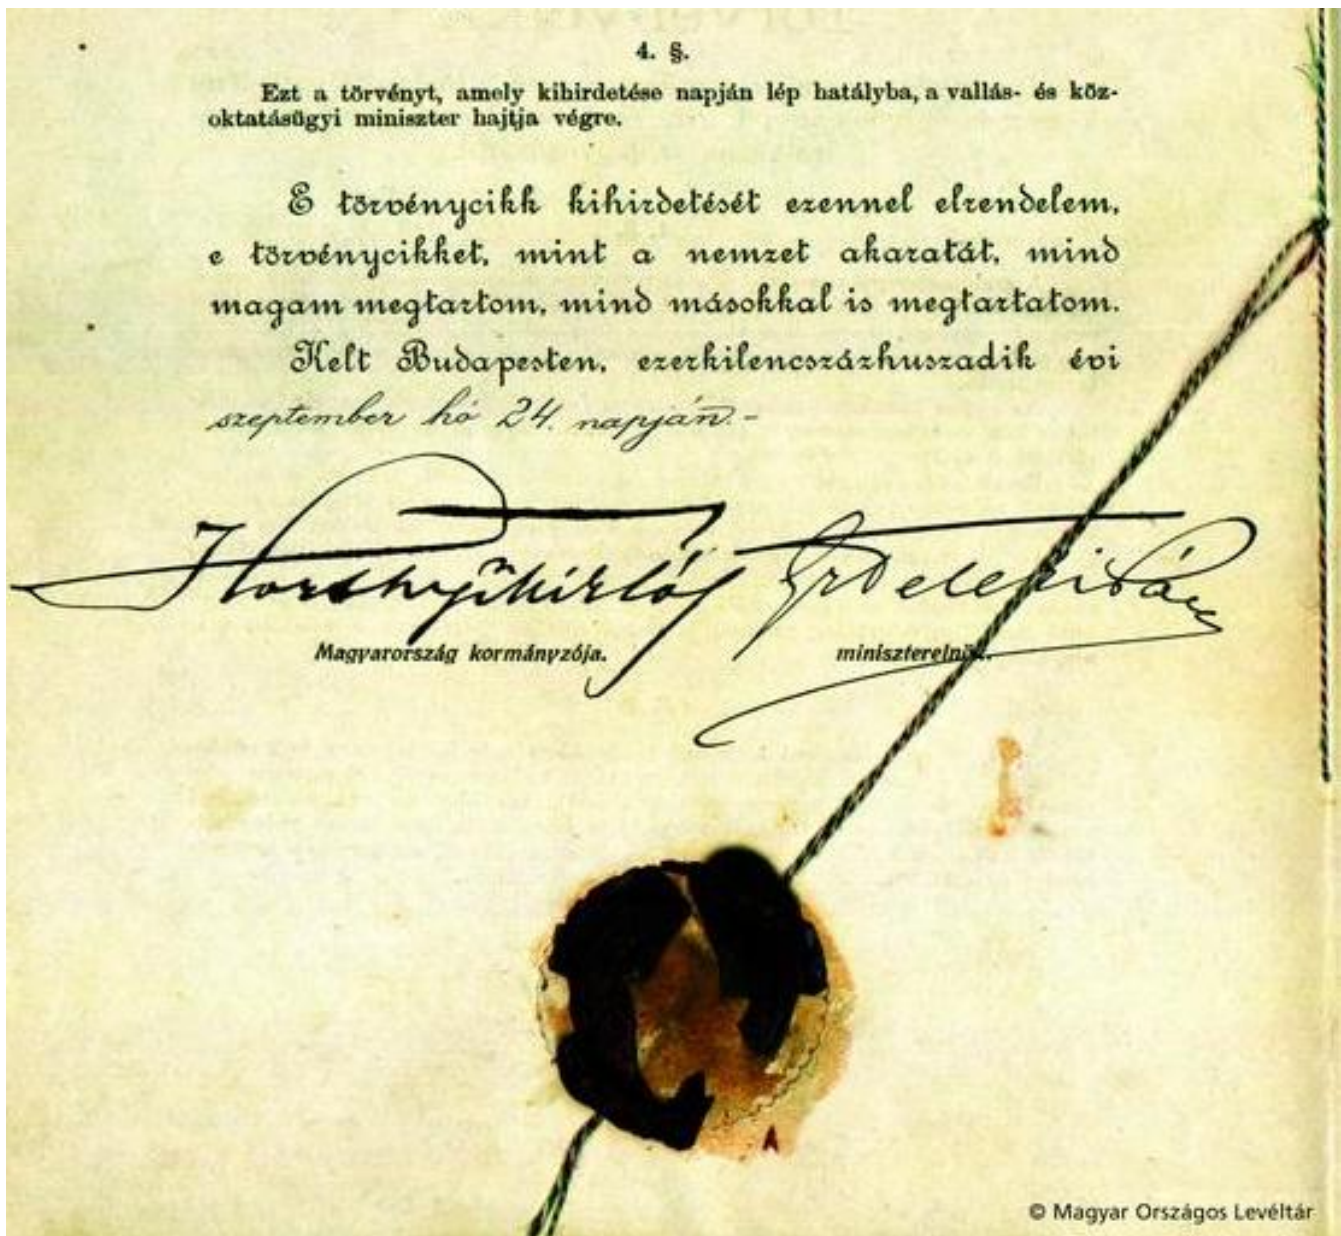 4. §.
Ezt a törvényt, amely kihirdetése napján lép hatályba, a vallás- és köz-
oktatásügyi miniszter hajtja végre.
E törvénycikk kihirdetését ezennel elrendelem,
e törvénycikket, mint a nemzet akaratát, mind
magam megtartom, mind másokkal is megtartatom.
Kelt Budapesten, ezerkilencszázhuszadik évi
szeptember hó 24. napján.-
Horthy Miklós Gr Teleki Pál
Magyarország kormányzója. miniszterelnök.
© Magyar Országos Levéltár